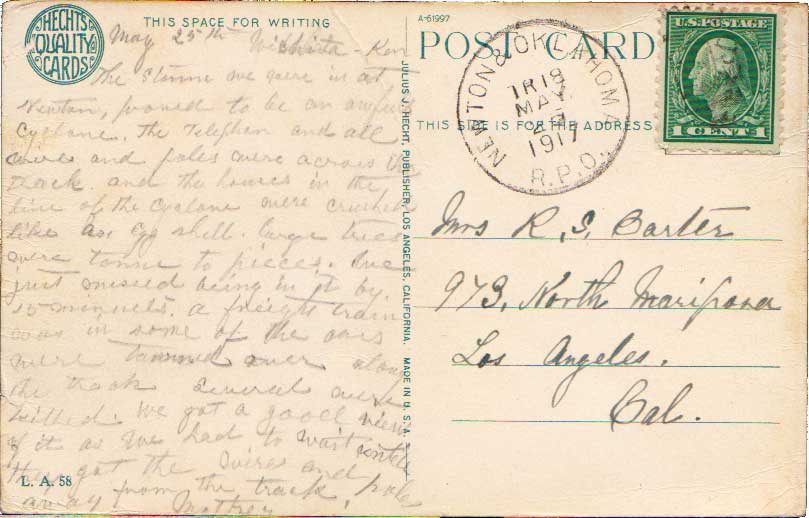 HECHT'S QUALITY CARDS
THIS SPACE FOR WRITING
May 25th Wichita - Kan
The Storme we were in at
Newton, proved to be an awful
Cyclone. The Telephon and all
wires and poles were across the
track. and the houses in the
line of the Cyclone were crushed
like an egg shell. large trees
were torne to pieces. We
just missed being in it by
15 minuets. a freight train
was in some of the cars
were turned over along
the track several were
killed. We got a good view
of it as we had to wait untill
they got the wires and poles
away from the track.
Mother
L. A. 58
JULIUS J. HECHT, PUBLISHER, LOS ANGELES, CALIFORNIA. MADE IN U. S. A.
A-61997
POST CARD
THIS SIDE IS FOR THE ADDRESS
NEWTON & OKLAHOMA
TR19
MAY
1917
R.P.O.
U.S. POSTAGE
1 CENT 1
Mrs R. S. Carter
973, North Mariposa
Los Angeles.
Cal.